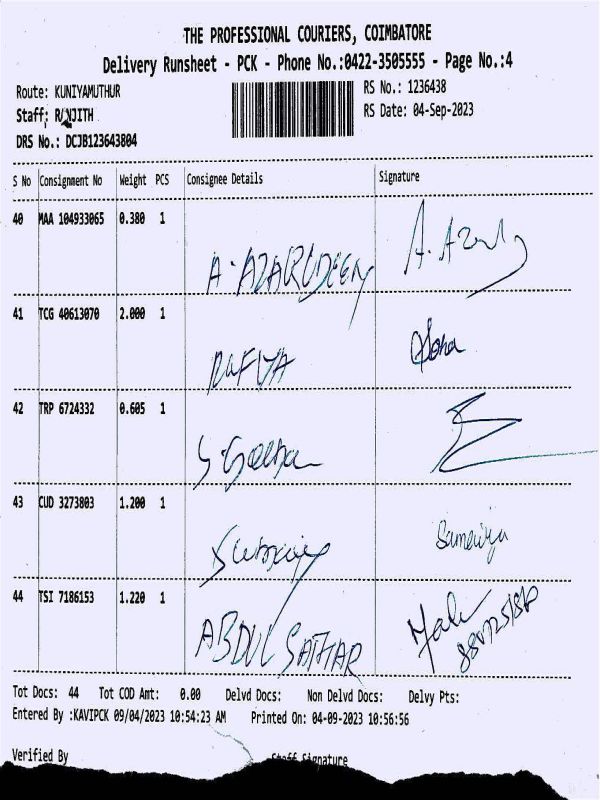 THE PROFESSIONAL COURIERS, COIMBATORE
Delivery Runsheet - PCK - Phone No.:0422-3505555 - Page No.:4
Route: KUNIYAMUTHUR
RS No.: 1236438
Staff: RANJITH
RS Date: 04-Sep-2023
DRS No.: DCJB123643804
S No Consignment No Weight PCS Consignee Details Signature
40 MAA 104933065 0.380 1 A. AZARUDEEN A. Az
41 TCG 40613070 2.000 1 RAFIYA
42 TRP 6724332 0.605 1
43 CUD 3273803 1.200 1
44 TSI 7186153 1.220 1 ABDUL SATHAR
Tot Docs: 44 Tot COD Amt: 0.00 Delvd Docs: Non Delvd Docs: Delvy Pts:
Entered By :KAVIPCK 09/04/2023 10:54:23 AM Printed On: 04-09-2023 10:56:56
Verified By Staff Signature